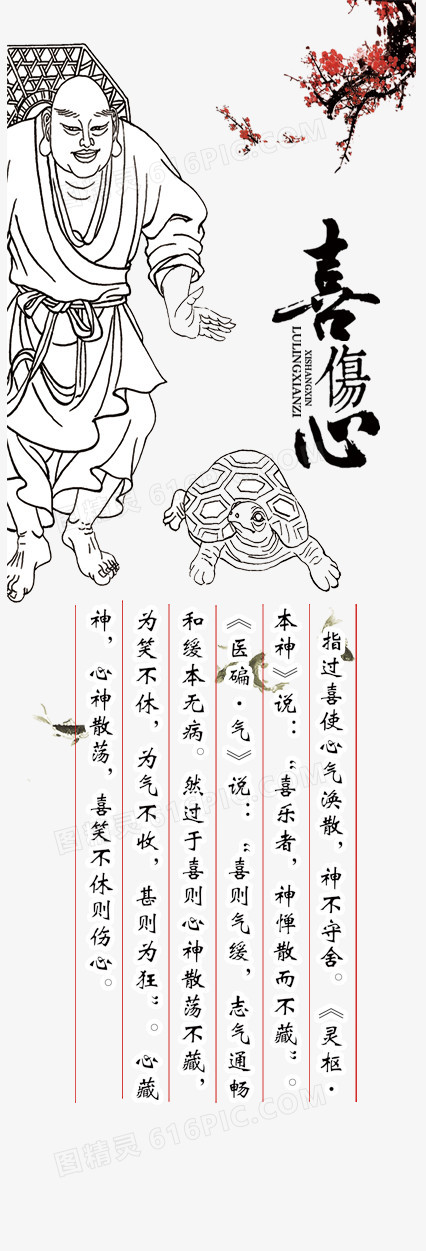 喜傷心
XISHANGXIN
LULINGXIANZI
指过喜使心气涣散，神不守舍。《灵枢·
本神》说：“喜乐者，神惮散而不藏”。
《医碥·气》说：“喜则气缓，志气通畅
和缓本无病。然过于喜则心神散荡不藏，
为笑不休，为气不收，甚则为狂”。心藏
神，心神散荡，喜笑不休则伤心。
图精灵 616PIC.COM